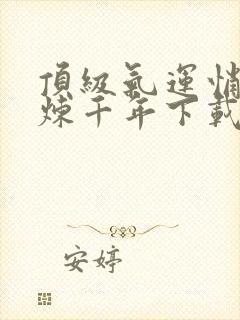 頂級氣運悄
煉千年下載
安婷